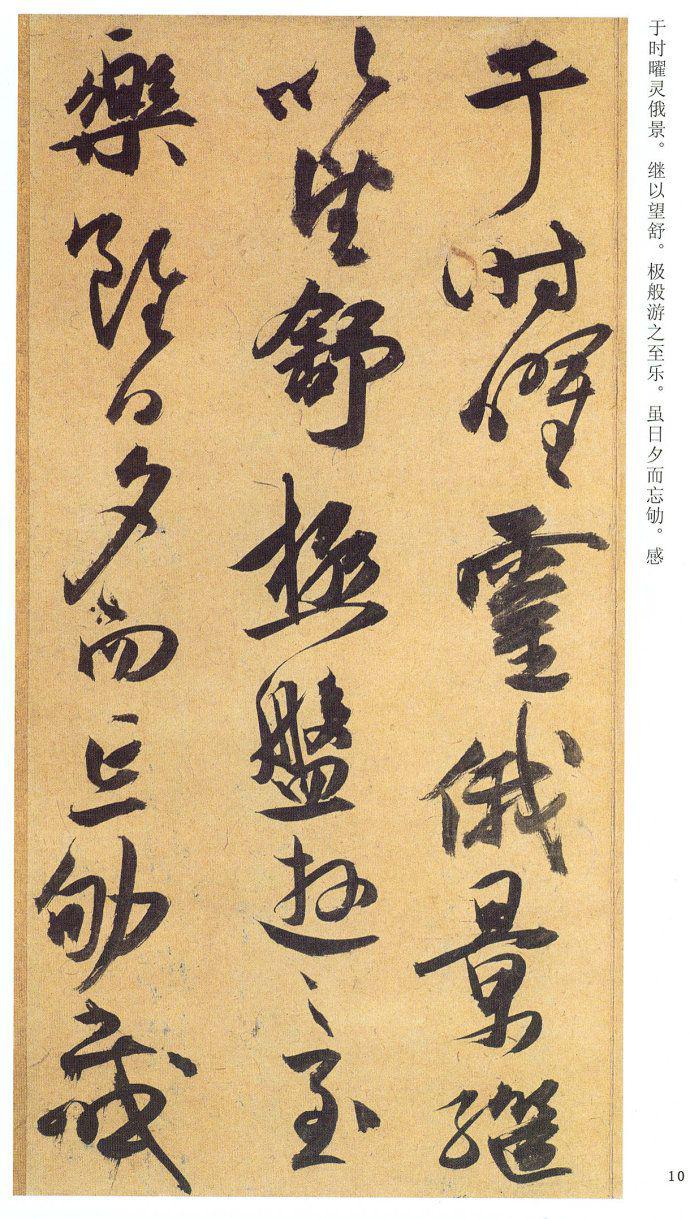 于时曜灵俄景。继以望舒。极般游之至乐。虽日夕而忘劬。感
于时曜靈俄景繼
以望舒極盤遊之至
樂雖日夕而忘劬感
10